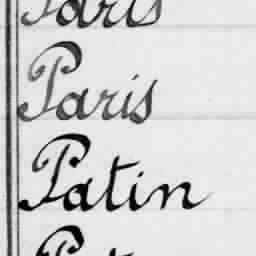 Paris
Paris
Patin